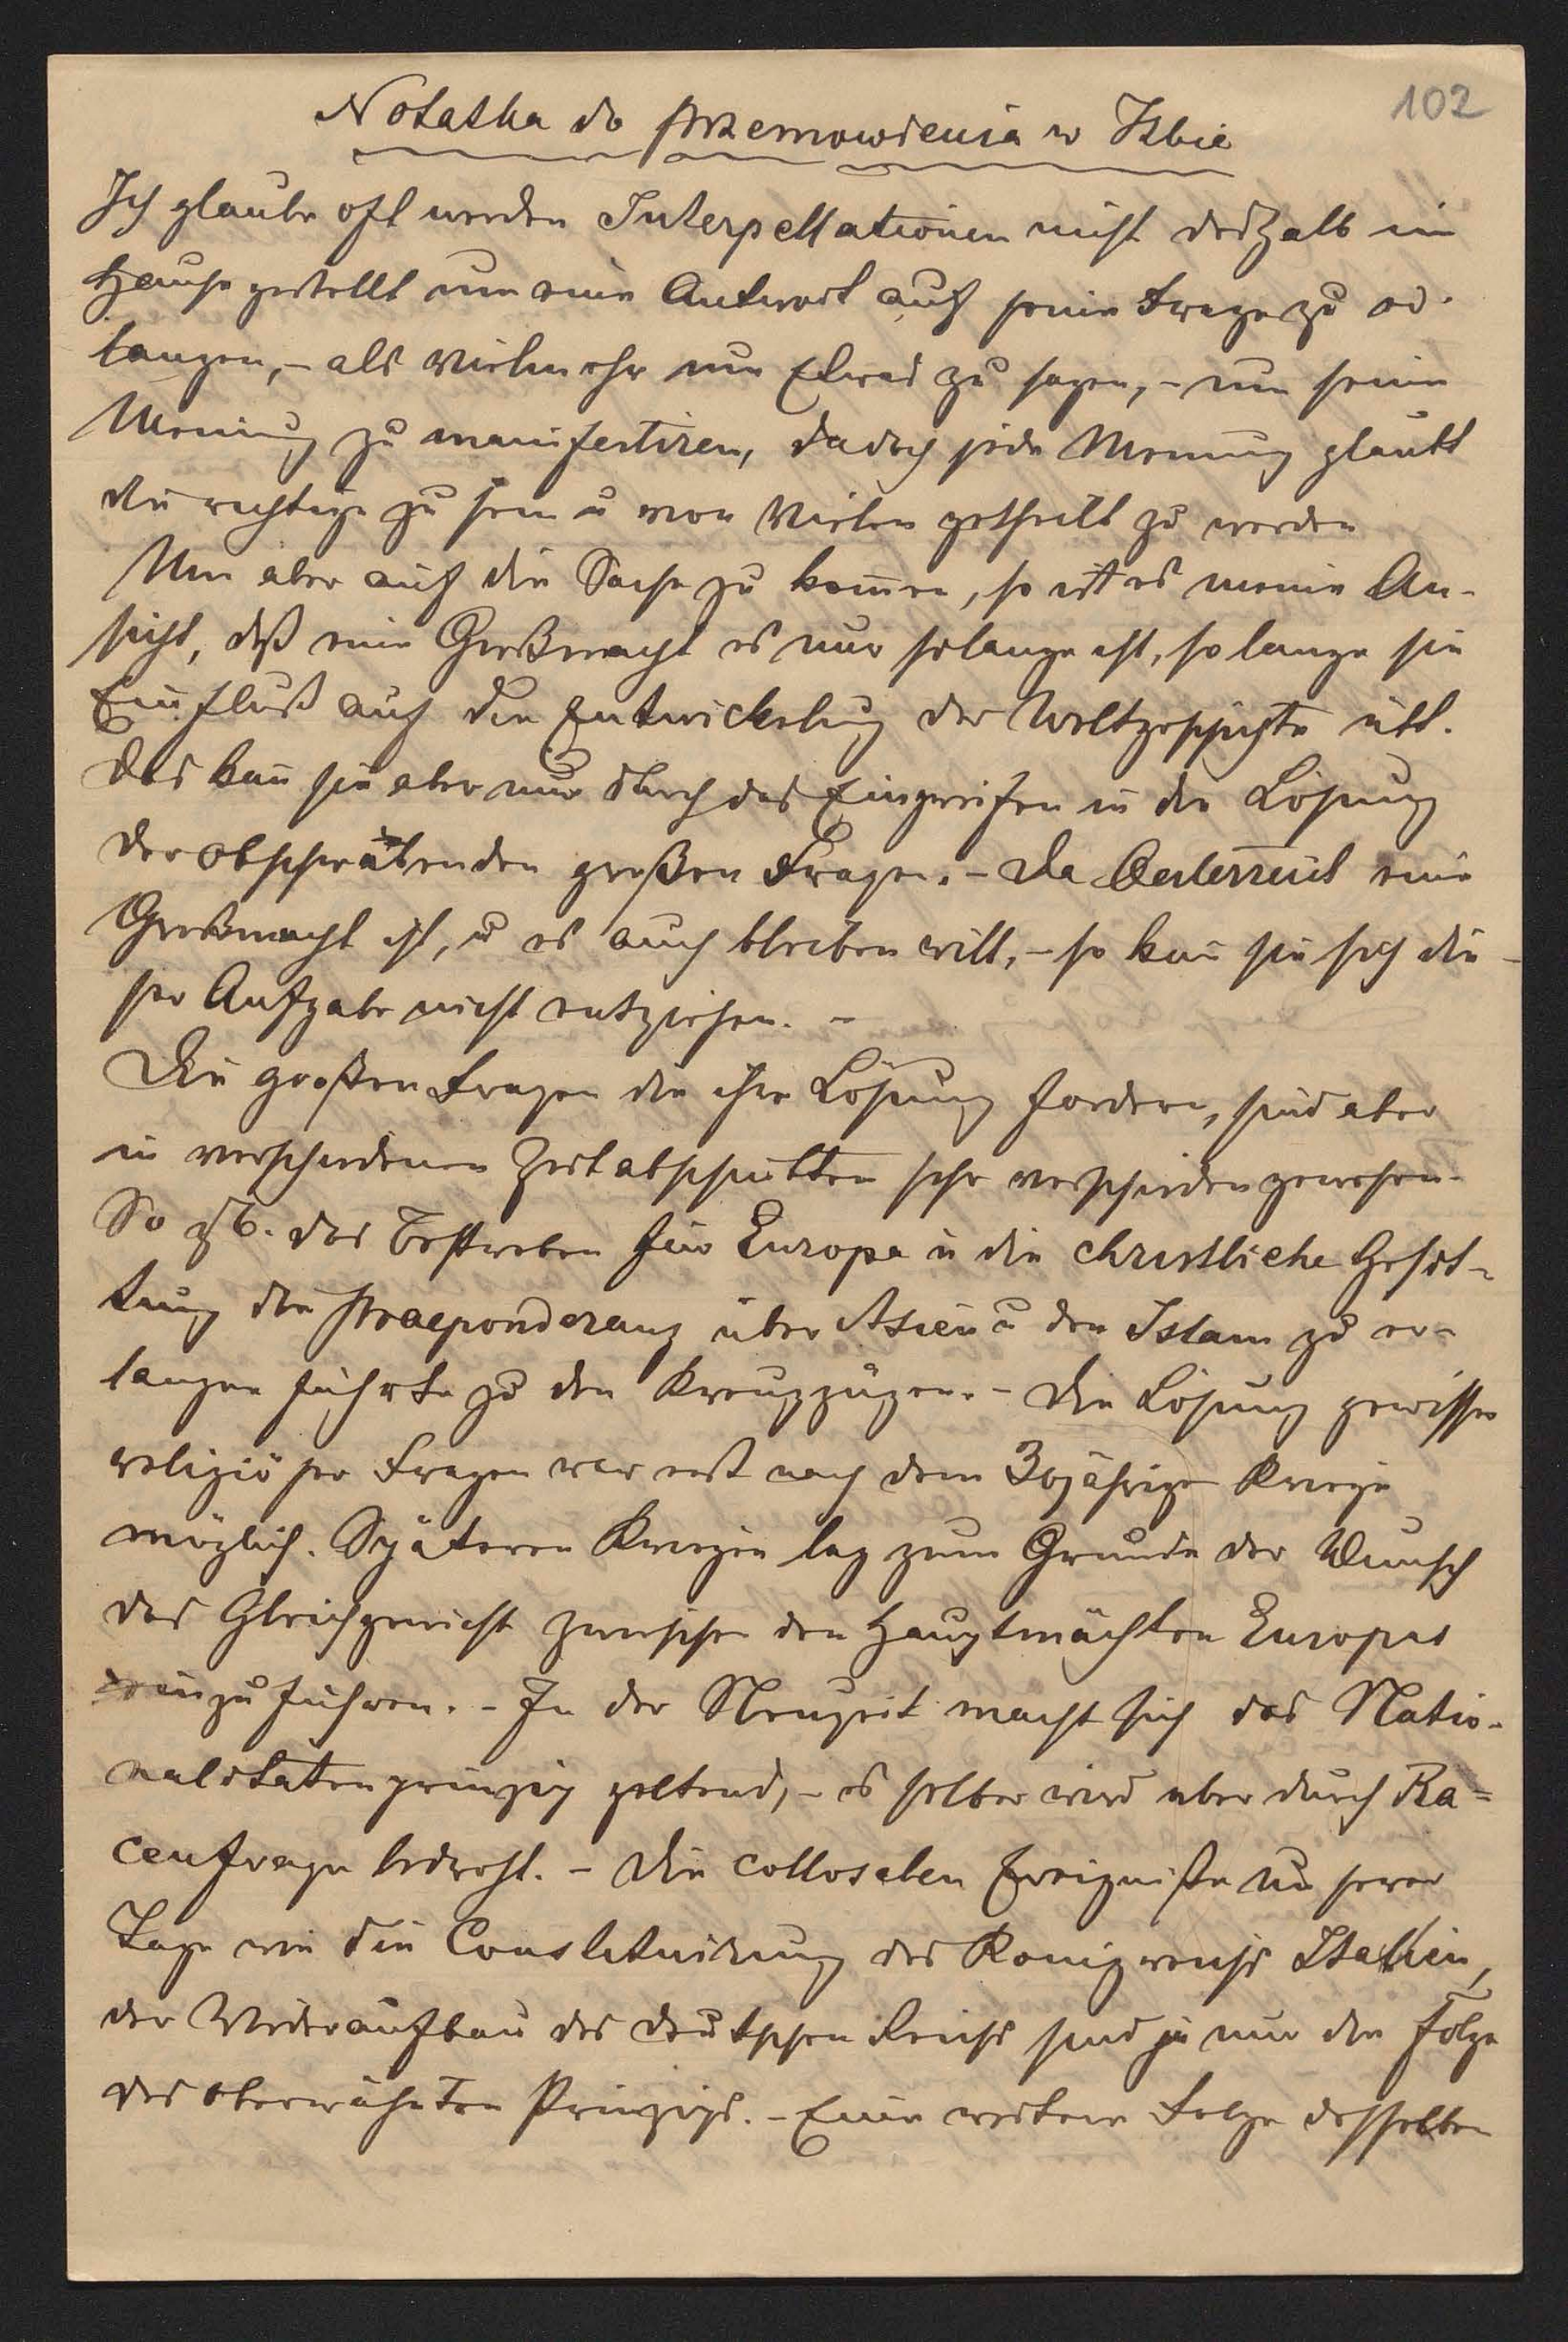 102
Notatka do przemowienia w Izbie
Ich glaube oft werden Interpellationen nicht deshalb im
Hause gestellt um eine Antwort auf seine Frage zu er-
langen, – als vielmehr um Etwas zu sagen, – um seine
Meinung zu manifestiren, da doch jede Meinung glaubt
die richtige zu sein u von Vielen getheilt zu werden
Um aber auf die Sache zu kom̄en, so ist es meine An-
sicht, daß eine Großmacht es nur solange ist, so lange sie
Einfluß auf die Entwickelung der Weltgeschichte übt.
Das kan̄ sie aber nur durch das Eingreifen in die Lösung
der obschwebenden großen Fragen. – Da Oesterreich eine
Großmacht ist, u es auch bleiben will, – so kan̄ sie sich die-
ser Aufgabe nicht entziehen. –
Die großen Fragen die ihre Lösung fordern, sind aber
in verschiedenen Zeitabschnitten sehr verschieden gewesen.
So zB. das Bestreben für Europa u die christliche Gesit-
tung die Praeponderanz über Asien u den Islam zu er-
langen führte zu den Kreuzzügen. – Die Lösung gewisser
religiöser Fragen war erst nach dem 30jährigen Kriege
möglich. Späteren Kriegen lag zum Grunde der Wunsch
das Gleichgewicht zwischen den Hauptmächten Europas
einzuführen. – In der Neuzeit macht sich das Natio-
nalitätenprinzip geltend, – es selber wird aber durch Ra-
cenfrage bedroht. – Die collosalen Ereigniße unserer
Tage wie die Constituirung des Königreichs Italien,
der Wideraufbau des deutschen Reichs sind ja nur die Folge
des oberwähnten Prinzips. – Eine weitere Folge desselben